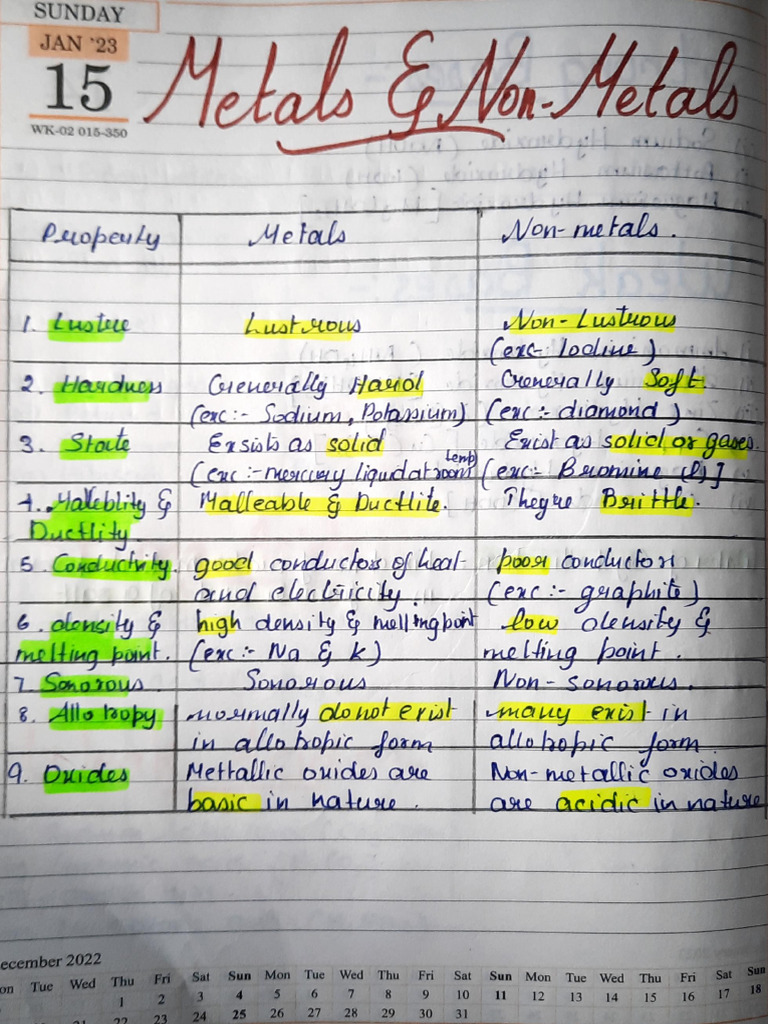 SUNDAY
JAN '23
15
WK-02 015-350
Metals & Non-Metals
Property Metals Non-metals.
1. Lustre Lustrous Non-Lustrous
(exc- Iodine)
2. Hardness Generally Hard Generally Soft.
(exc:- Sodium, Potassium) (exc:- diamond)
3. State Exsists as solid Exist as solid or gases.
(exc:- mercury liquid at room temp (exc:- Bromine (l)]
4. Malleblity & Malleable & Ductlite. Theyre Brittle.
Ductlity.
5. Conductivity. good conductors of heat poor conductor
and electricity. (exc:- graphite)
6. density & high density & melting point low density &
melting point. (exc:- Na & K) melting point.
7. Sonorous Sonorous Non-sonorous.
8. Allotropy normally do not exist many exist in
in allotropic form allotropic form.
9. Oxides Mettallic oxides are Non-metallic oxides
basic in nature. are acidic in nature
ecember 2022
on Tue Wed Thu Fri Sat Sun Mon Tue Wed Thu Fri Sat Sun Mon Tue Wed Thu Fri Sat Sun
1 2 3 4 5 6 7 8 9 10 11 12 13 14 15 16 17 18
22 23 24 25 26 27 28 29 30 31